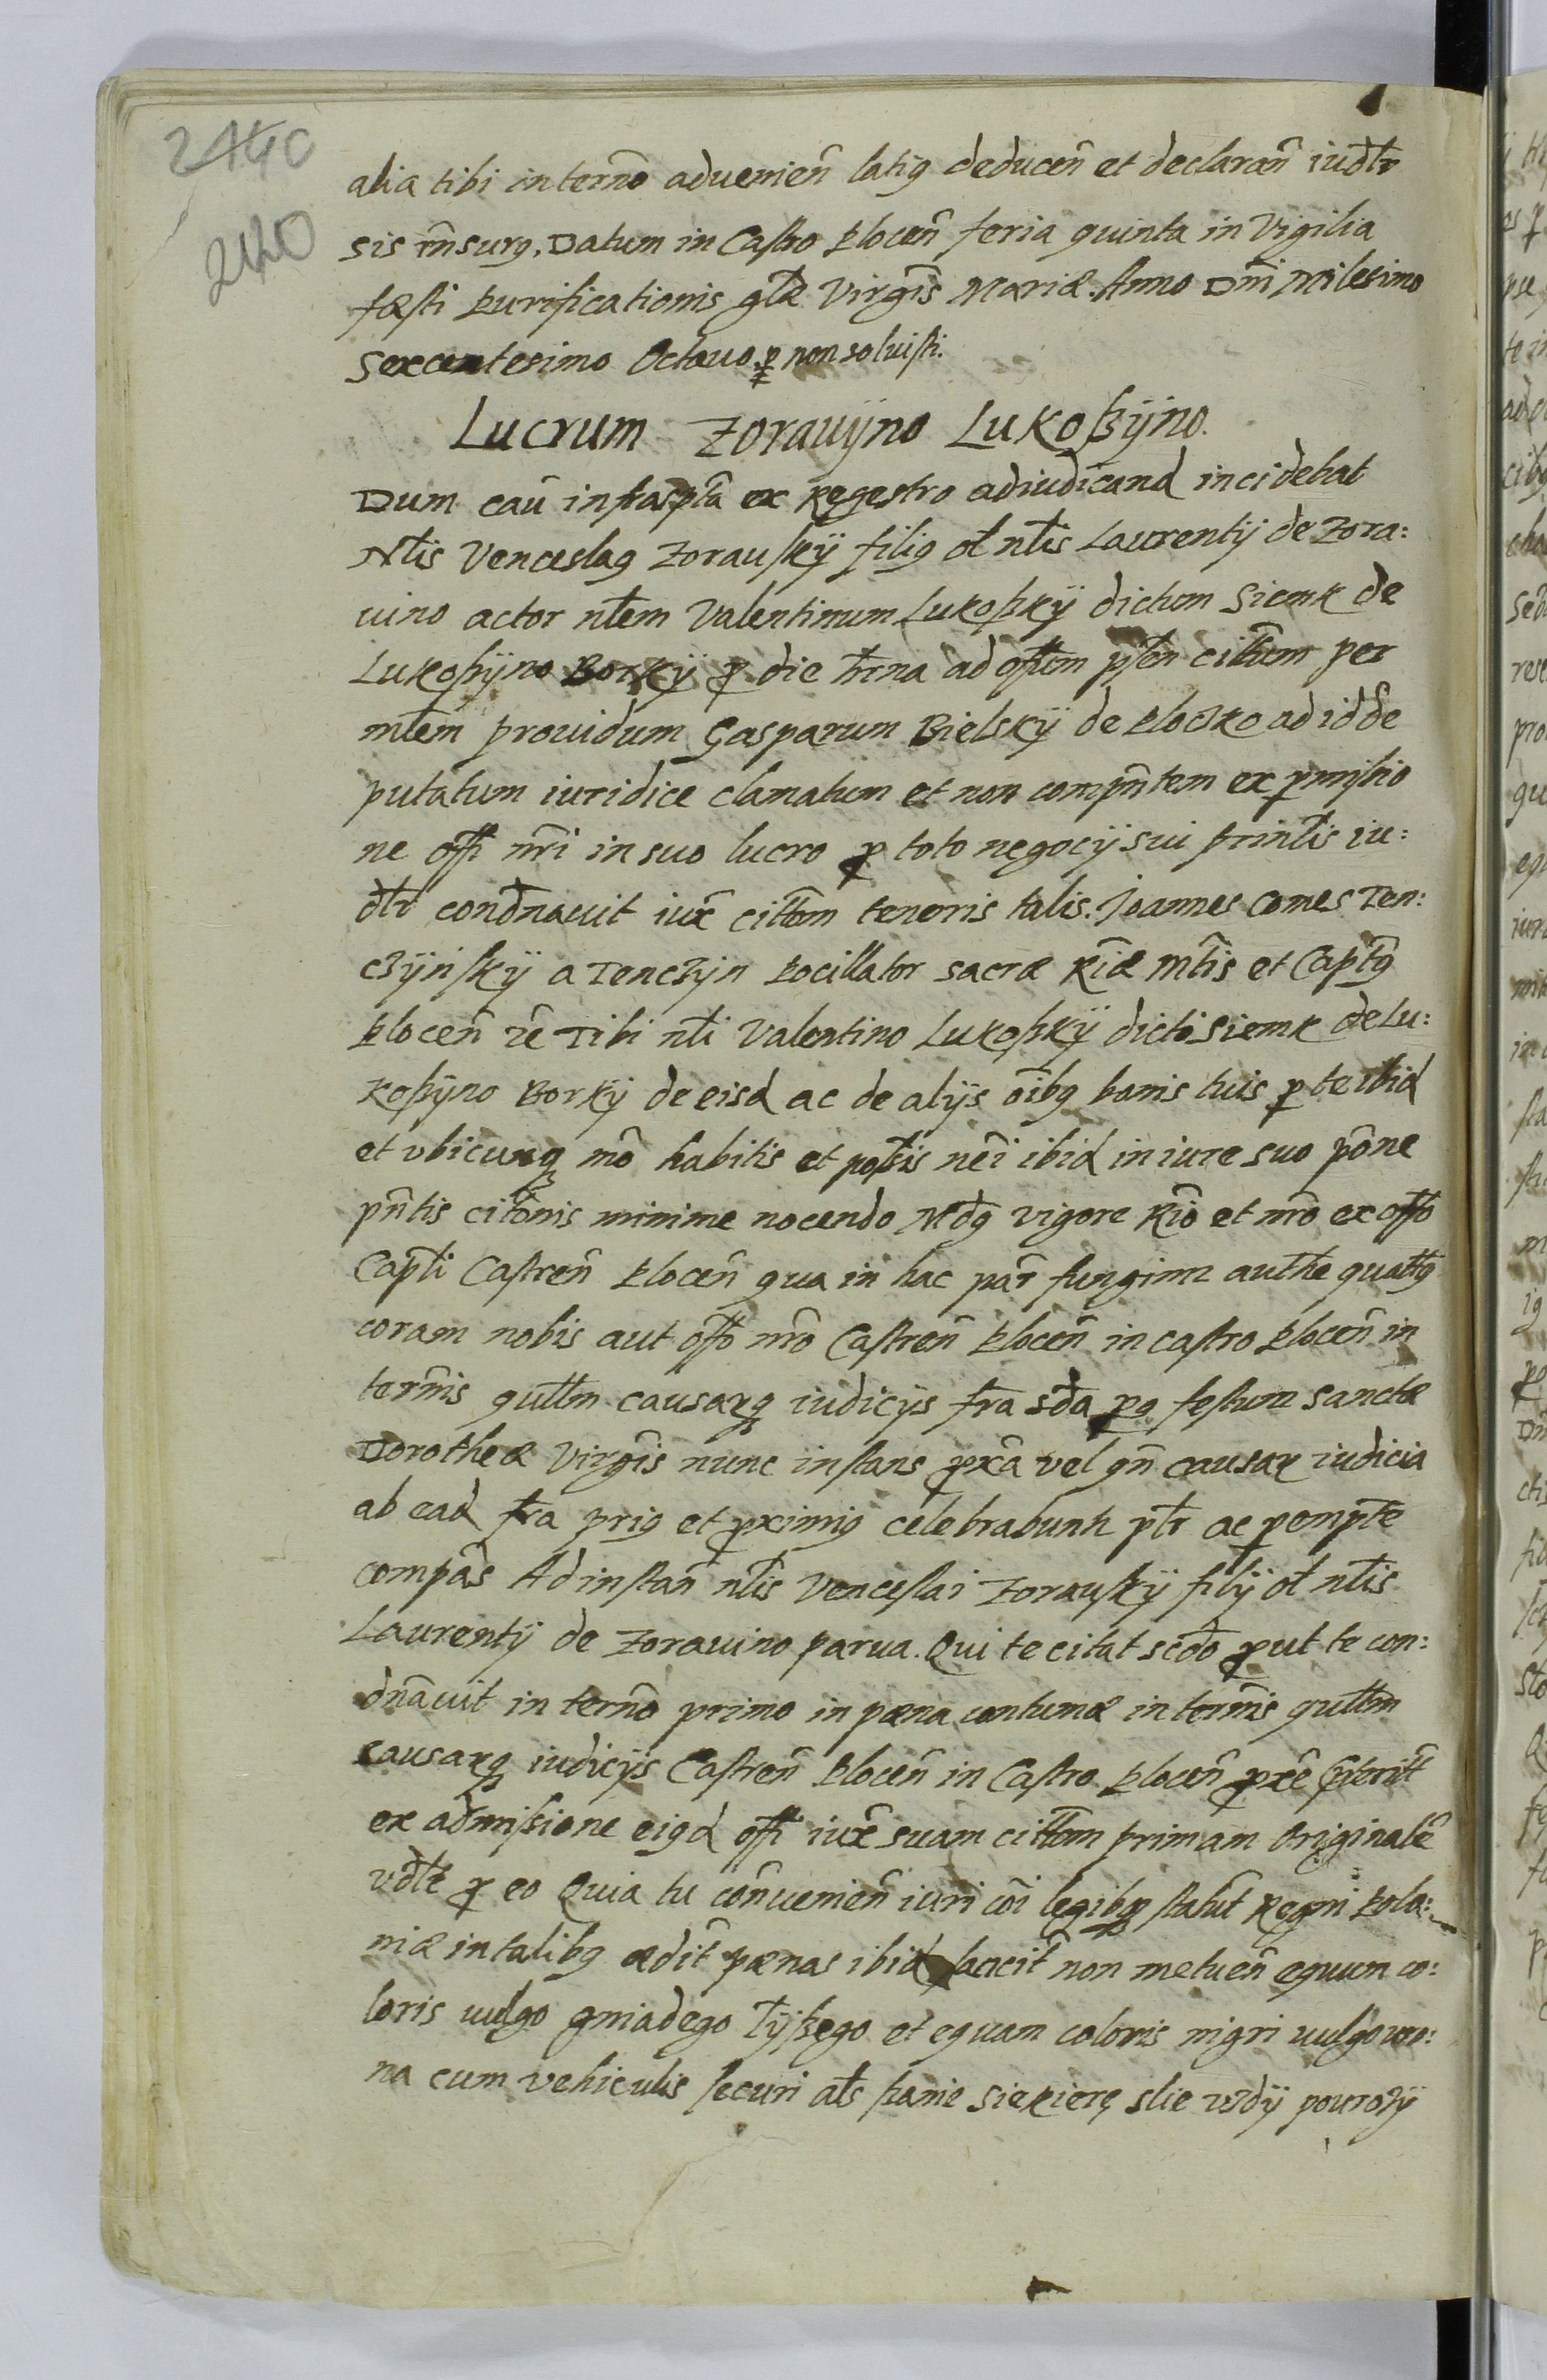 2440
2420
alia tibi in termō aduenien̄ latig deducen̄ et declaran̄ iudłr
sis rn̄surg. Datum in Castro Plocen̄ feria quinta in Vigilia
fæsti Purificationis glæ Virgīs Mariæ. Anno Dn̄i Milesimo
Sexcentesimo Octauo. p non soluisti.
Lucrum Zorauÿno Lukoßÿno.
Dum cau̅ infrasp̄ta ex Regestro adiudicand incidebat
Nłis Venceslag Zorauskÿ filig oł nłis Laurentÿ de Zora:
uino actor nłem Valentinum Lukoßkÿ dictum Siemk de
Lukoßÿno Borkÿ p die hr̄na ad offum p̄len citt̄um per
młem prouidum Gasparum Bielskÿ de Plocko ad id de
putatum iuridice clamatum et non compn̄tem ex pmißio
ne offi nr̄i in suo lucro p toto negocÿ sui prinłis iu:
dłr condn̄auit iux̄ citt̄om tenoris talis. Joannes Comes Ten:
czÿnskÿ a Tenczÿn Pocillator Sacræ Ri̅æ Mt̄is et Capt̄g
Plocen̄ re̅ Tibi nłi Valentino Lukoßkÿ dicto Siemk de Lu:
koßÿno Borkÿ de eisd ac de alÿs oi̅bg bonis tuis p te ibid
et vbicunq mō habitis et poßis nēi ibid in iure suo pōne
pn̄tis citōnis minime nocendo Mdg vigore Riō et nr̄o ex offo
Capłi Castren̄ Plocen̄ qua in hac par̄ fungimr authe quattg
coram nobis aut offo nr̄o Castren̄ Plocen̄ in castro Plocen̄ in
termīs qułłm causarq iudicÿs fr̄a sda pg festum Sanctæ
Dorotheæ Virgīs nunc instans px̄a vel qn̄ causar iudicia
ab ead fr̄a prig et pximig celebrabunt płr ac pempte
compās Ad instan̄ nłis Venceslai Zorauskÿ filÿ oł nłis
Laurentÿ de Zorauino parua. Qui te citat scdo put te con:
dn̄auit in termō primo in pæna contumæ in termīs qułłm
causarq iudicÿs Castren̄ Plocen̄ in Castro Plocen̄ px̄e p̄teritt
ex admißione eigd offi iux̄ suam citt̄om primam Originalē
vdłt p eo Quia tu conuenien̄ iuri coi̅ legibg statut̄ Regni Polo:
niæ in talibg ædit̄ pænas ibid sacit̄ non metuen̄ equum co:
loris uulgo gniadego Łÿßego et equam coloris nigri uulgo wro:
na cum vehiculis securi ałs panie siekierę slie vzdÿ pourozÿ